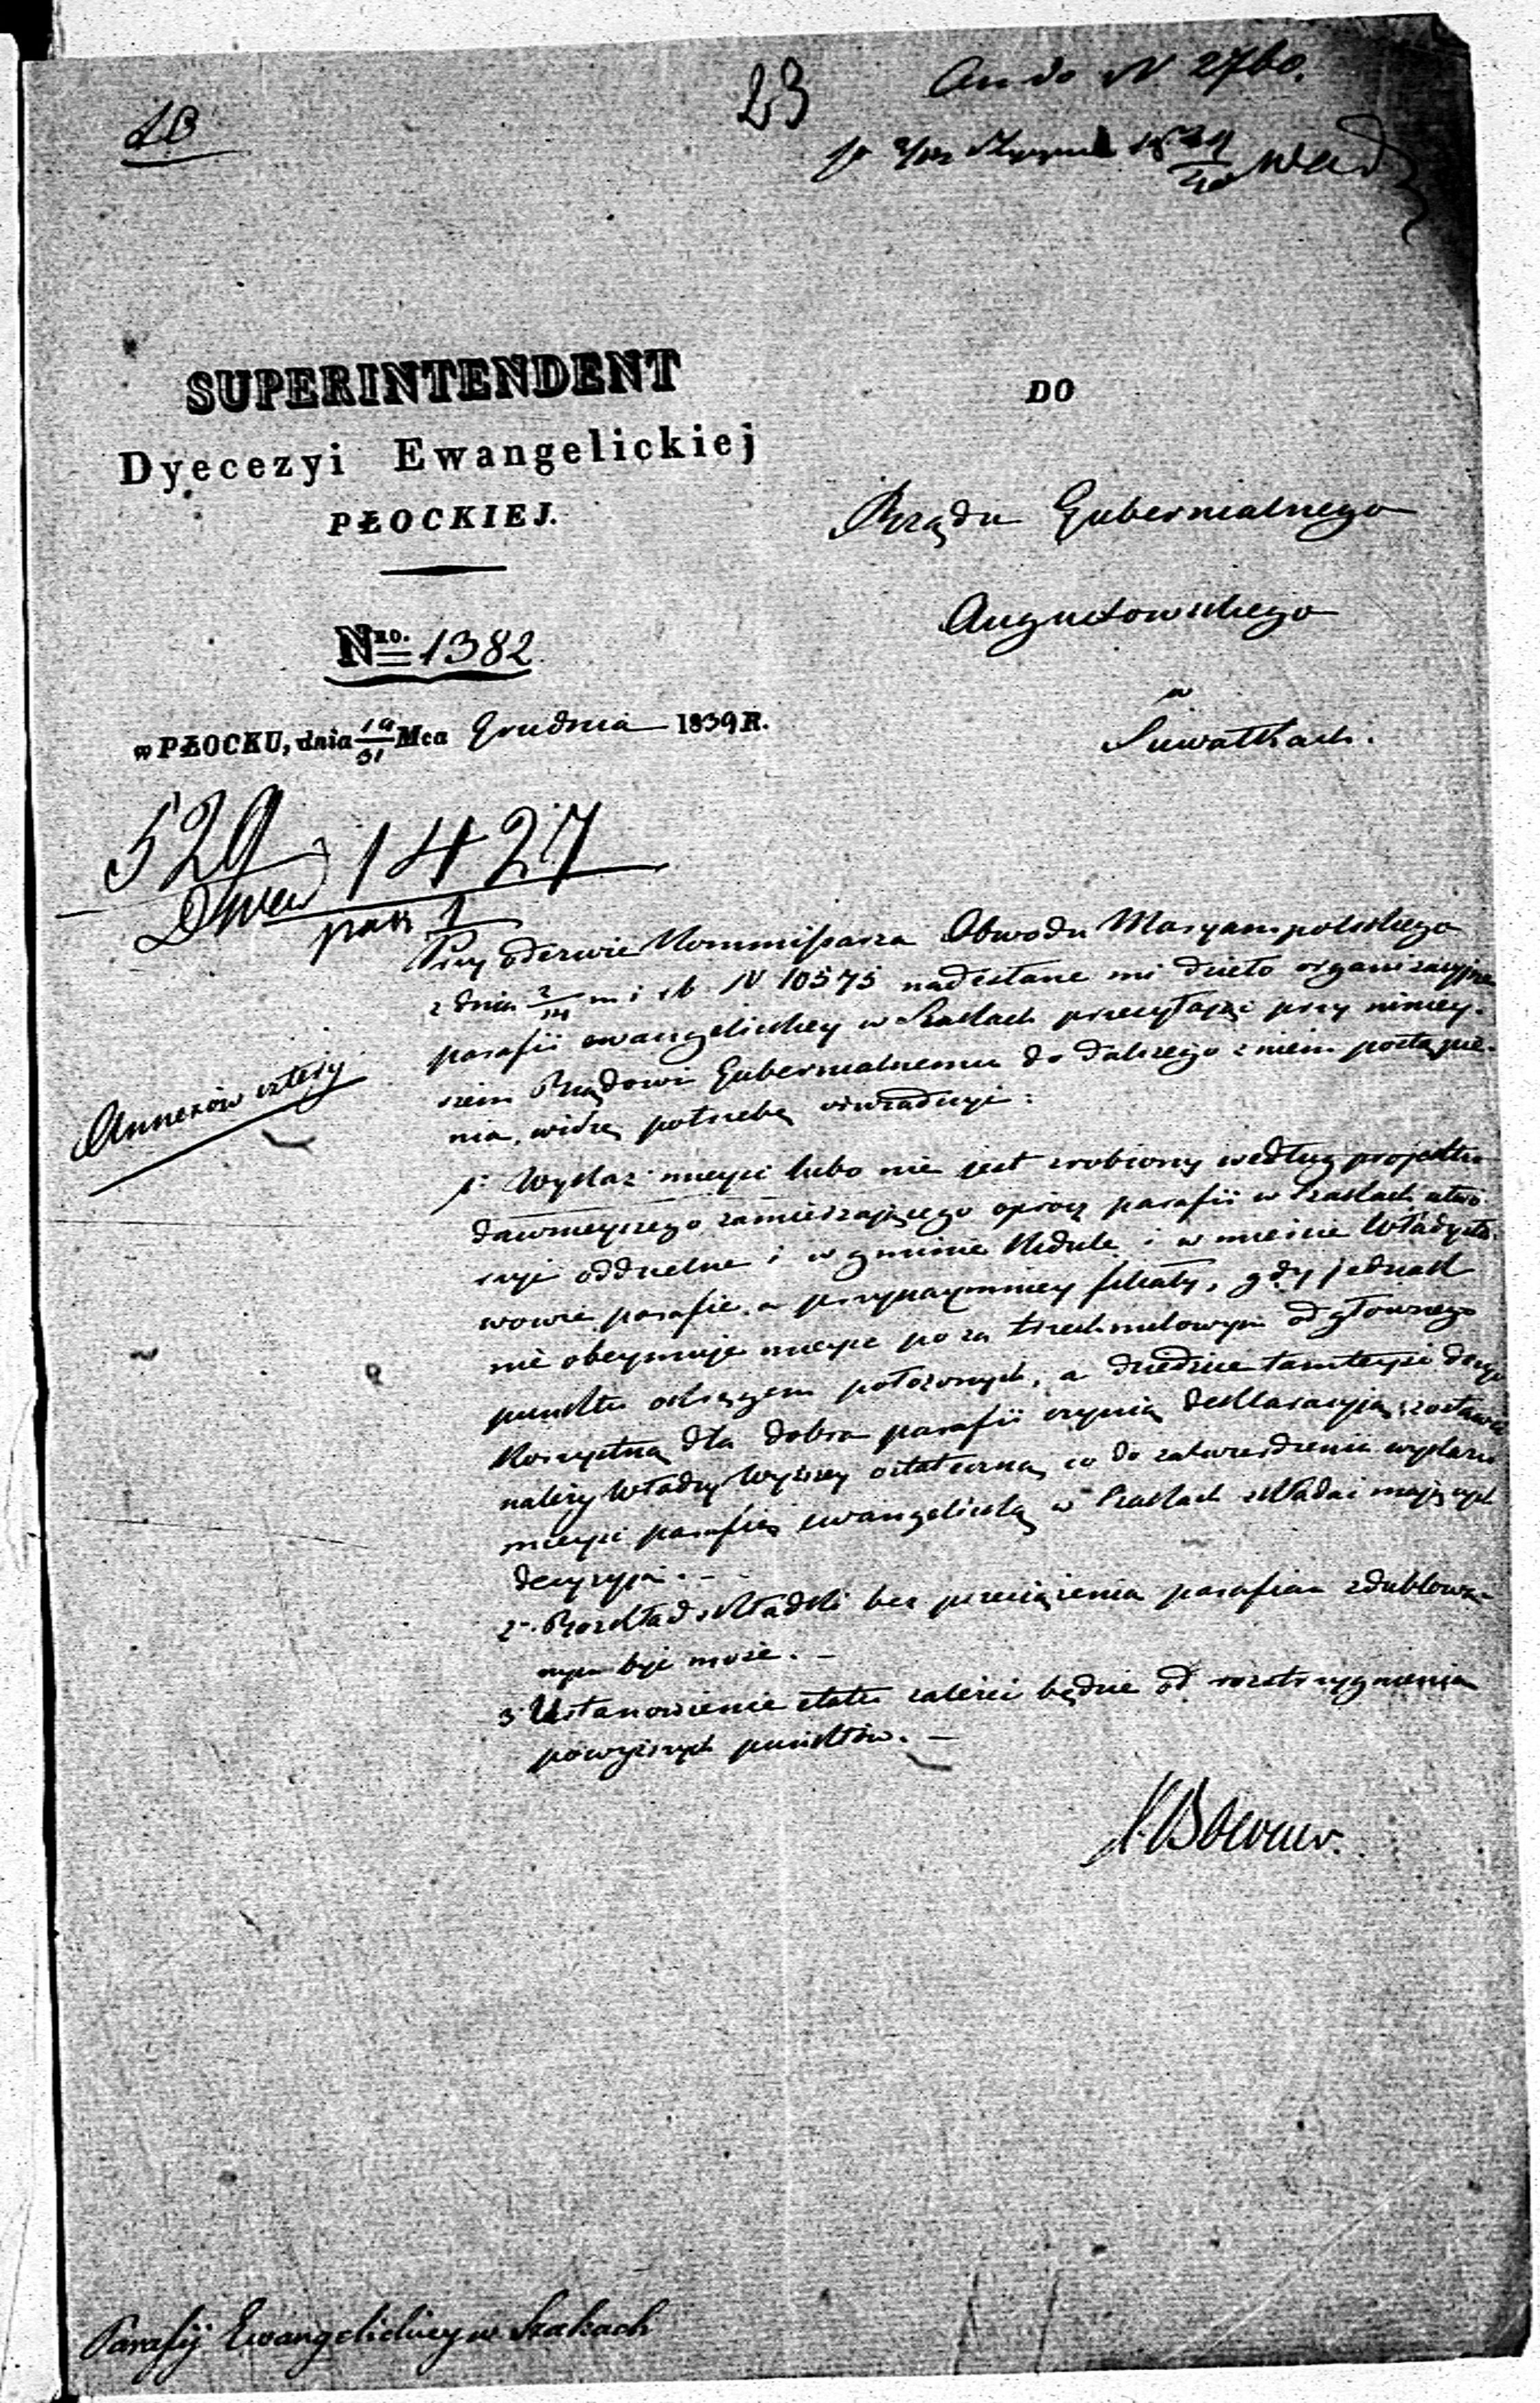 23
Ando N 2760.
SUPERINTENDENT
Dyecezyi Ewangelickiej
PŁOCKIEJ.
Nro. 1382
w PŁOCKU, dnia 19/31 Mca Grudnia 1839 R.
DO
Rządu Gubernialnego
Augustowskiego
w
Suwałkach.
529 1427
Annexów cztery
Przy odezwie Kommissarza Obwodu Maryampolskiego
z dnia 2/14 m i r b N 10575 nadesłane mi dzieło organizacyjne
parafii ewangelickey w Szakach przesyłając przy niniey-
szem Rządowi Gubernialnemu do dalszego z niem postąpie-
nia, widzę potrzebę
1. Wykaz mieysc lubo nie jest zrobiony według projektu
dawnieyszego zamierzającego oprócz parafii w Szakach utwo-
rzyć oddzielne i w gminie Kidule i w mieście Władysła-
wowie parafie, a przynaymniey filiały, gdy jednak
nie obeymuje mieysc po za trzechmilowym od głównego
punktu okręgiem położonych, a dziedzice tamteysi
korzystną dla dobra parafii czynią deklaracyją, zostawić
należy Władzy Wyższey ostateczną co do zatwierdzenia wykazu
mieysc parafię ewangelicką w Szakach składać mających
decyzyją. –
2. Rozkład składki bez przeciążenia parafian zdublowa-
nym być może. –
3 Ustanowienie etatu zależeć będzie od rozstrzygnienia
powyższych punktów. –
Parafij Ewangelickiey w Szakach